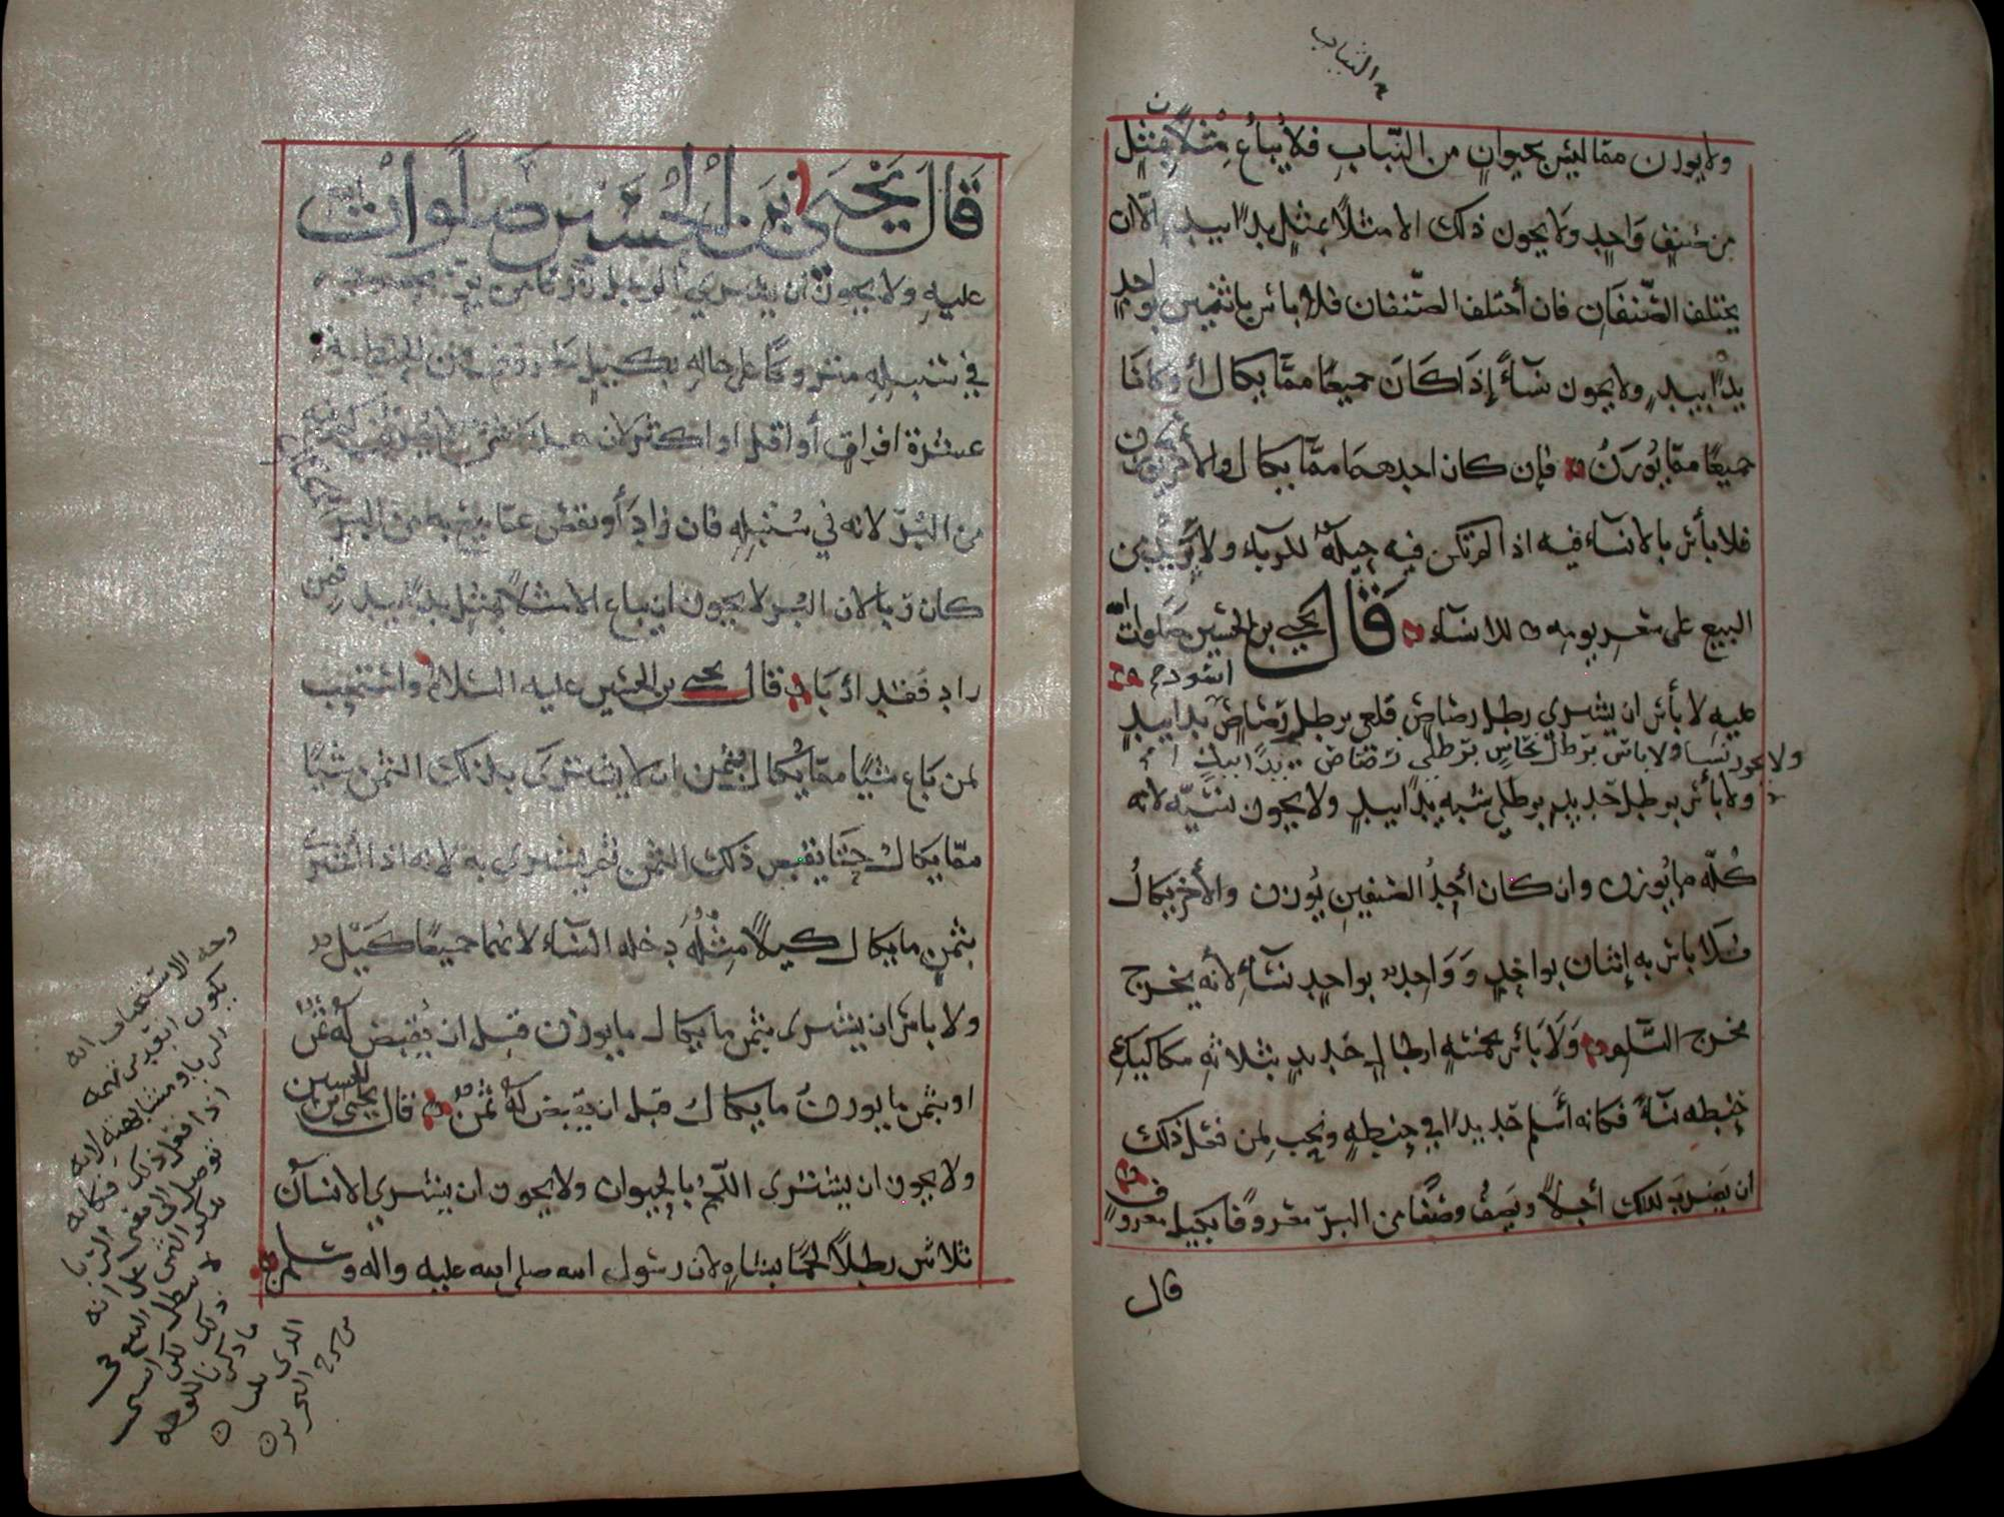 ه الثياب
ولا يوزن مما ليس بحيوان من الثياب فلا يباع مثلا بمثل
من صنف واحد ولا يجوز ذلك الا مثلا بمثل يدا بيد الا ان
يختلف الصنفان فان أختلف الصنفان فلا بأس باثنين بواحد
يدا بيد ولا يجوز نسآء إذا كان جميعا مما يكال أو كانا
جميعا مما يوزن فإن كان احدهما مما يكال والأخر يوزن
فلا بأس بالانسآء فيه اذا لم تكن فيه حيلة للربآء ولا يزيد في
البيع على سعر يومه للانسآء قال يحيى بن الحسين صلوات الله
عليه لا بأس ان يشتري رطل رصاص قلعي برطل رصاص اسود يدا بيد
ولا يجوز نسا ولا باس برطل نحاس برطلي رصاص يدا بيد
ولا بأس برطل حديد برطلي شبه يدا بيد ولا يجوز بنسيه لانه
كله مما يوزن وان كان أحد الصنفين يوزن والأخر يكال
فلا بأس به إثنان بواحد وواحد بواحد نسآء لأنه يخرج
مخرج السلو ولا بأس بخمسه ارطال حديد بثلاثه مكاكيك
حنطه نسآء فكانه أسلم حديدا في حنطه ويجب لمن فعل ذلك
ان يضرب لذلك أجلا ويصف وصفا من البر معروفا بكيل معروف
قال
قال يحيى بن الحسين صلوات الله
عليه ولا يجوز ان يشتري الرجل زرعا من
في سنبله متروكا على حاله بكيل من الحنطه
عشرة افراق أو اقل او اكثر لان
من البر لانه في سنبله فان زاد أو نقص عما بيع به من البر
كان ربا لان البر لا يجوز ان يباع الا مثلا بمثل يدا بيد فمن
زاد فقد اربا قال يحيى بن الحسين عليه السلام واستحب
لمن باع شيا مما يكال بثمن ان لا يشترى بذلك الثمن شيا
مما يكال حتا يقبض ذلك الثمن ثم يشترى به لانه اذا اشترى
بثمن ما يكال كيلا مثله دخله النسآء لانهما جميعا كيل
ولا باس ان يشترى بثمن ما يكال ما يوزن قبل ان يقبض له ثمن
او بثمن ما يوزن ما يكال قبل ان يقبض له ثمن قال يحيى بن الحسين
ولا يجوز ان يشترى اللحم بالحيوان ولا يجوز ان يشتري الانسان
ثلاثين رطلا لحما بشاه لان رسول الله صلى الله عليه واله وسلم
وجه الاستحباب انه
يكون ابعد من تهمه
الربا ومشابهته لانه
اذا فعل ذلك فكانه